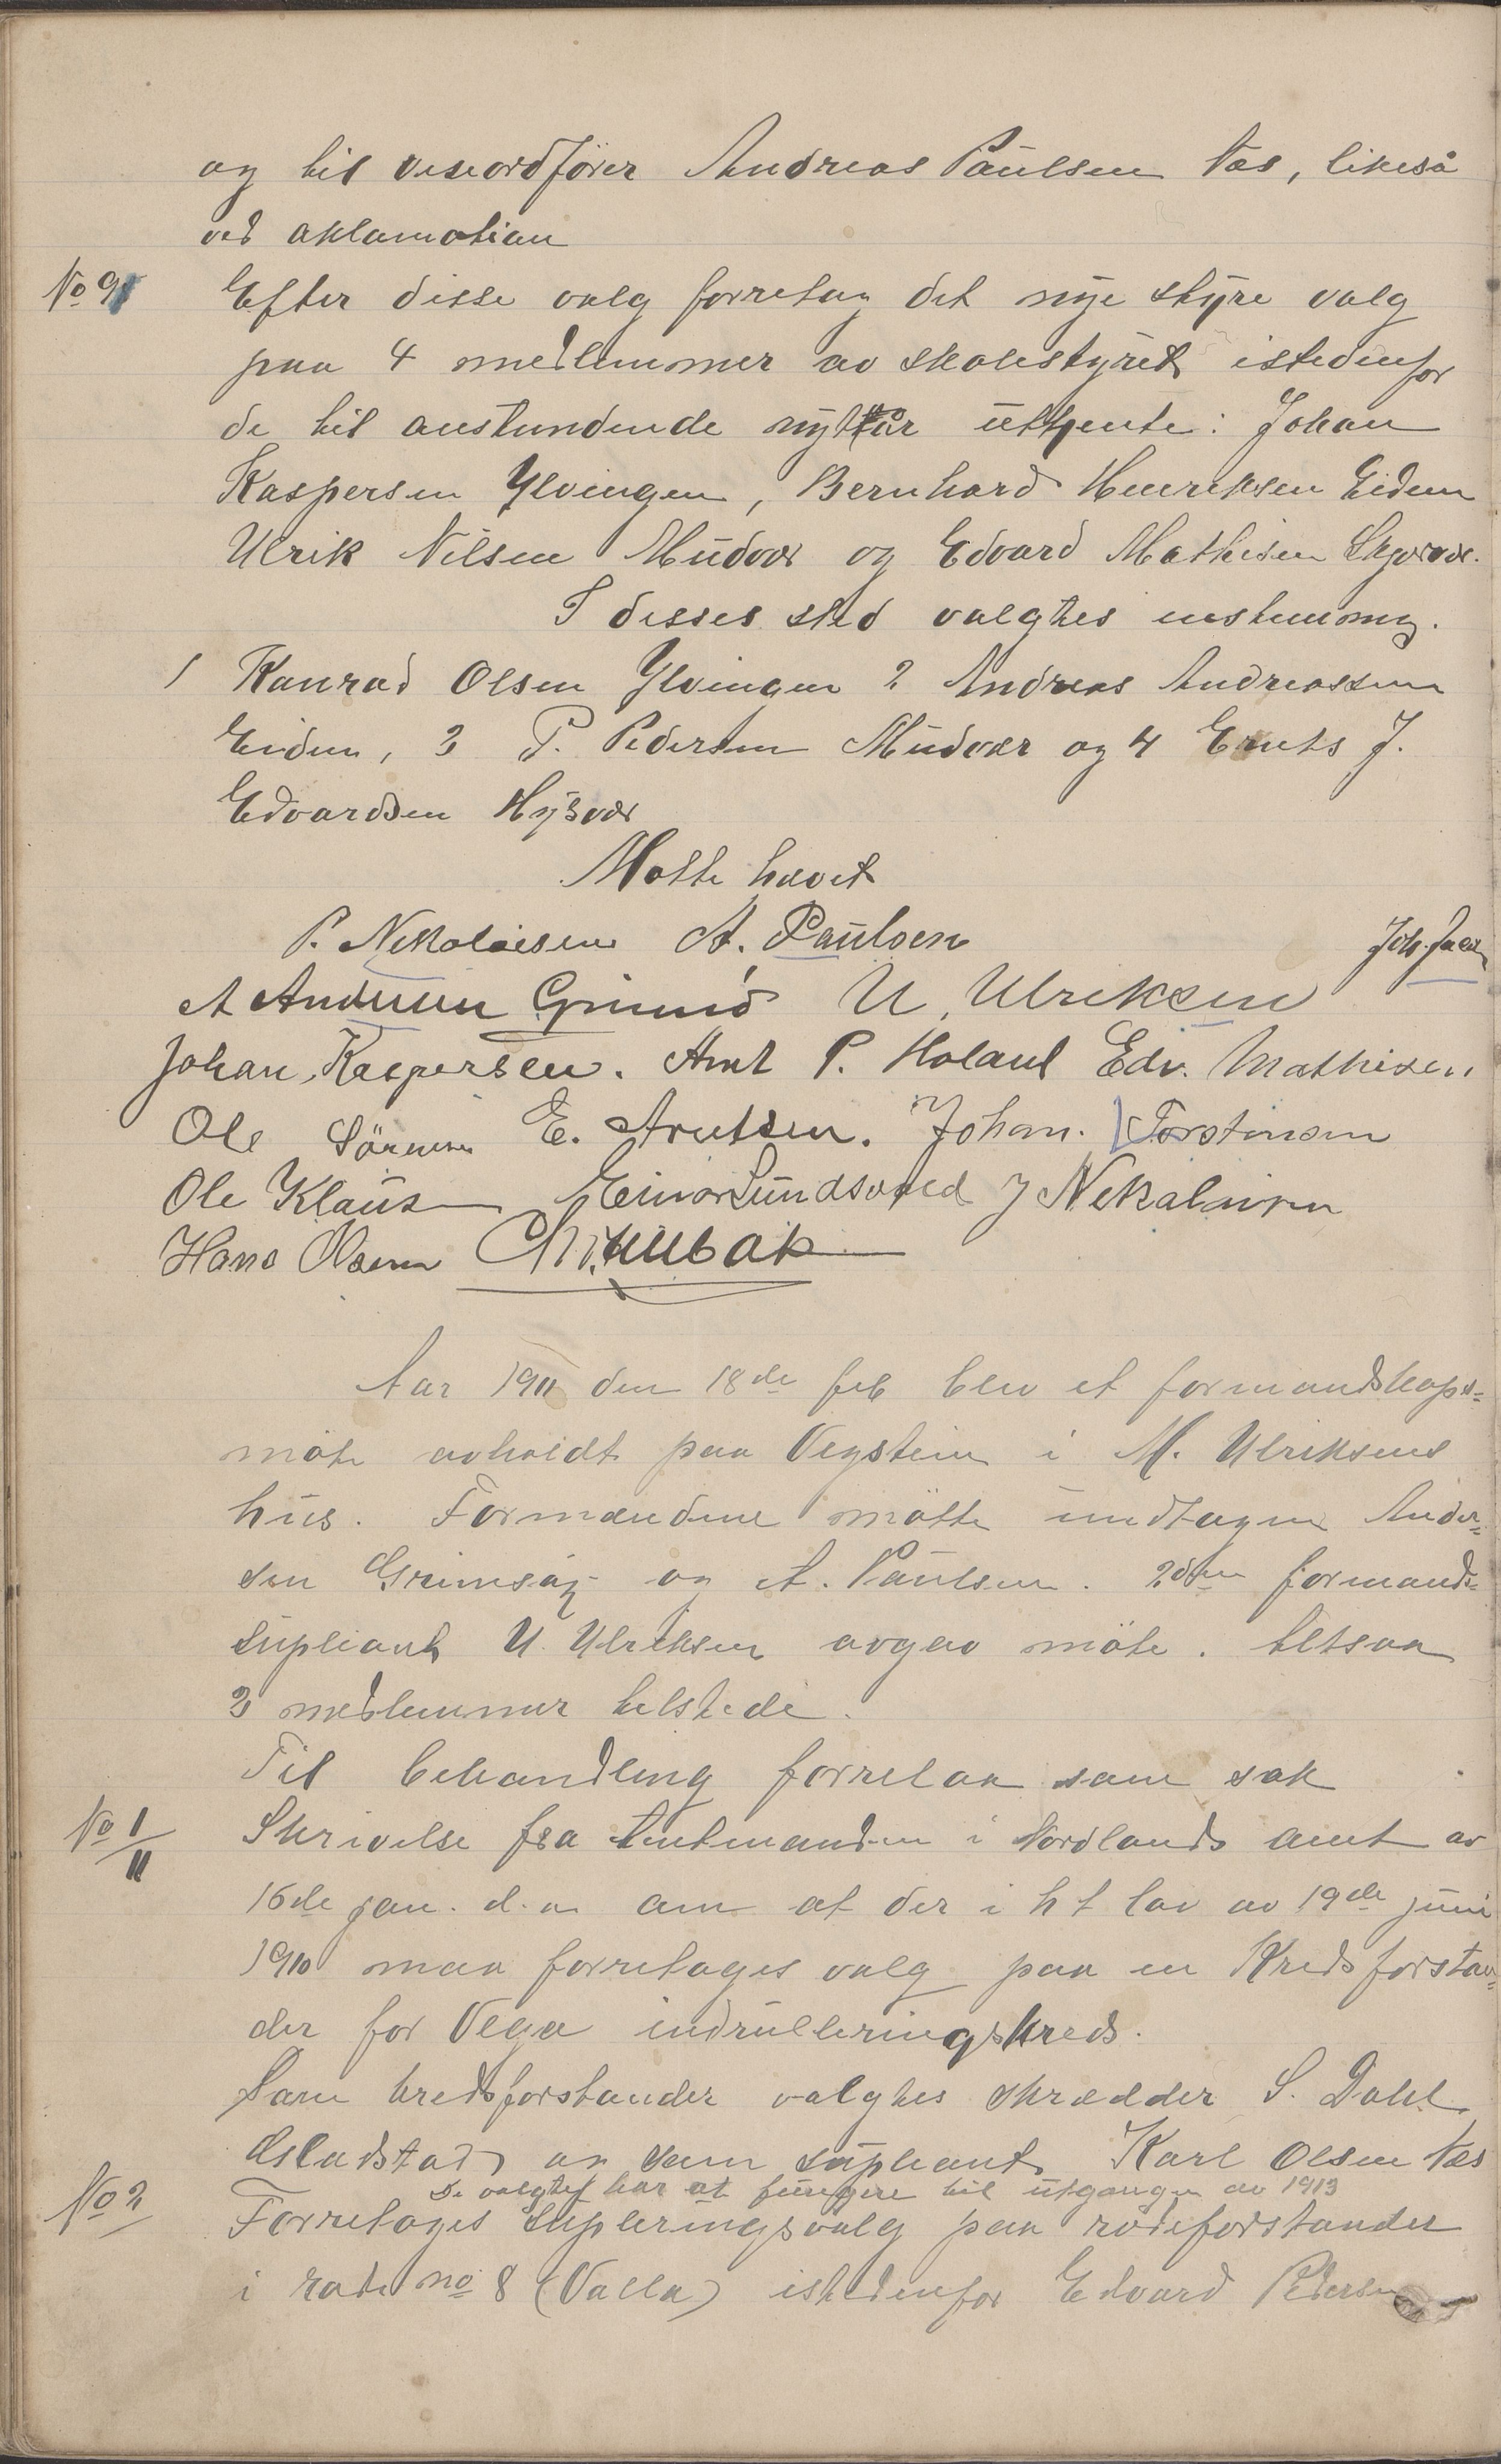 og til viseordfører Andreas Paulsen Næs, likeså
ved aklamation
No 9 Efter disse valg forretog det nye styre valg
paa 4 medlemmer av skolestyret istedenfor
de til anstundende nyttår uttjente: Johan
Kaspersen Ylvingen, Bernhard Henriksen Eidem
Ulrik Nilsen Mudvær og Edvard Mathisen Skjærvær.
I disses sted valgtes enstemmig.
1 Konrad Olsen Ylvingen 2 Andreas Andreassen
Eidem, 3 P. Pedersen Mudvær og 4 Ernts J.
Edvardsen Hysvær
Møtte hævet
P. Nikolaisen A. Paulsen Joh. Jacs
A Andersen Grimsø U. Ulriksen
Johan Kaspersen. Amt P. Holand Edv. Mathisen
Ole Sörensen E. Arntsen. Johan. Torstensen
Ole Klaus Einar Sundsvold J Nikolaisen
Hans Olsen
Aar 1911 den 18de feb blev et formandskaps=
møte avholdt paa Vegstein i M. Ulriksens
hus. Formændene møtte undtagen Ander=
sen Grimsøy og A. Paulsen. 2den formands=
supliant U. Ulriksen avgav møte. Altsaa
3 medlemmer tilstede.
Til behandling forrelaa som sak
No 1/11 Skrivelse fra Amtmanden i Nordlands amt av
16de jan. d.a om at der i h t lov av 19de juni
1910 maa forretages valg paa en Kredsforstan=
der for Vega indrulleringskreds.
Som kredsforstander valgtes skrædder S. Dahl
Gladstad og som supliant Karl Olsen Næs
De valgte har at fungere til utgangen av 1913
No 2 Forretoges Supleringsvalg paa rodeforstander
i rode no 8 (Valla) istedenfor Edvard Pedersen